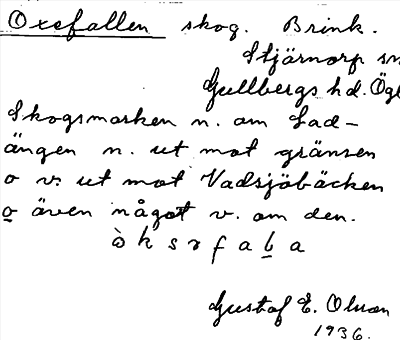 Oxefallen skog. Brink.
Stjärnorp sn
Gullbergs hd. Ög
Skogsmarken n. om Lad-
ängen n. ut mot gränsen
o v. ut mot Vadsjöbäcken
o även något v. om den.
ò k s r f a b a
Gustaf E. Olson
1936.